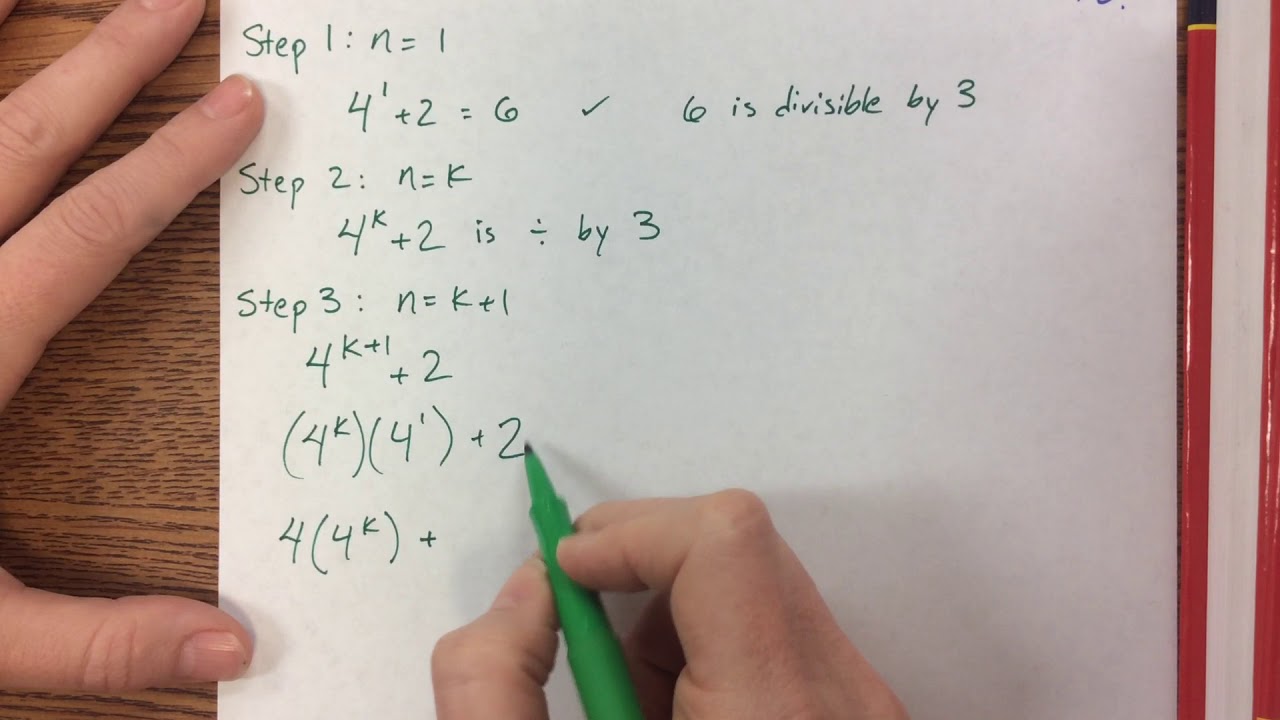 Step 1: n = 1
4¹ + 2 = 6 ✓ 6 is divisible by 3
Step 2: n = k
4ᵏ + 2 is ÷ by 3
Step 3: n = k+1
4ᵏ⁺¹ + 2
(4ᵏ)(4¹) + 2
4(4ᵏ) +